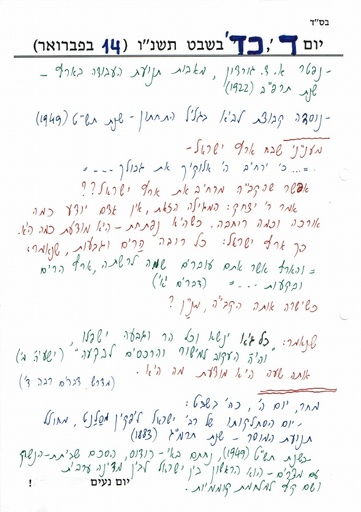 בס״ד
יום ד', כד' בשבט תשנ״ו (14 בפברואר)
- נפטר א. ד. גורדון, מאבות תנועת העבודה בארץ -
שנת תרפ״ב (1922)
- נוסדה קבוצת לביא בגליל התחתון - שנת תש״ט (1949)
מעניני שבח ארץ ישראל -
"... כי ירחיב ה' אלוקיך את גבולך ...
אפשר שהקב״ה מרחיב את ארץ ישראל??
אמר ר' יצחק: המגילה הזאת, אין אדם יודע כמה
אורכה וכמה רוחבה. כשהיא נפתחת - היא מודעת כמה היא.
כך ארץ ישראל: כל רובה הרים וגבעות, שנאמר:
"והארץ אשר אתם עוברים שמה לרשתה, ארץ הרים
ובקעות ..." (דברים יא')
כשישרה אותה הקב״ה, מנין?
שנאמר: "כל גיא ינשא וכל הר וגבעה ישפלו,
והיה העקוב למישור והרכסים לבקעה" (ישעיה מ')
אותה שעה היא מודעת מה היא.
(מדרש דברים רבה ד')
מחר, יום ה', כה' בשבט:
- יום הסתלקותו של רבי ישראל ליפקין מסלנט, מחולל
תנועת המוסר - שנת תרמ״ג (1883)
- בשנת תש״ט (1949), נחתם באי - רודוס, הסכם שביתת-הנשק
עם מצרים - הוא הראשון בין ישראל לבין מדינה ערבית
ושם קץ למלחמת קוממיות.
יום נעים !